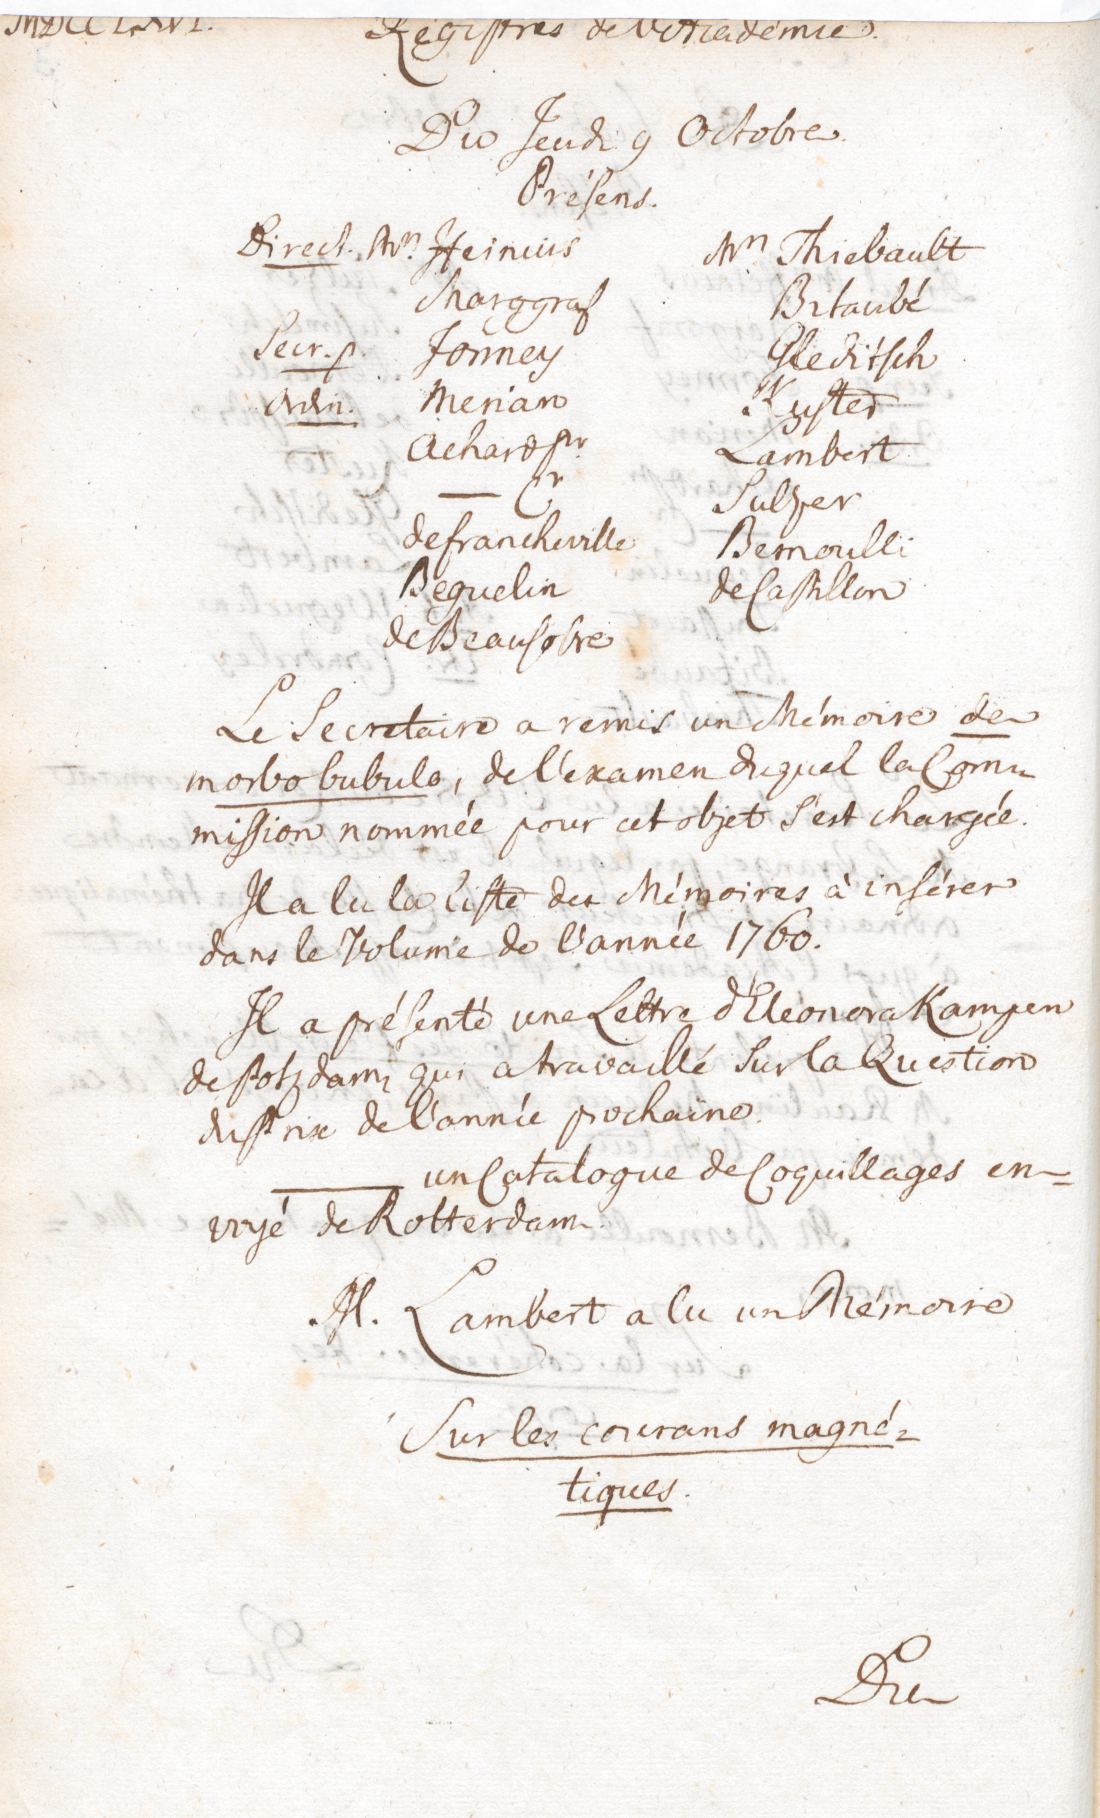 MDCCLXVI. Registres de l'Academie.
Du Jeudi 9 Octobre.
Présens.
Direct. Mrs. Heinius Mrs Thiebault
Marggraf Bitaubé
Secr. p. Formey Gleditsch
Merian Kuster
Achard pr. Lambert
— Cr Sulzer
de Francheville Bernoulli
Beguelin de Castillon
de Beausobre
Le Secretaire a remis un Mémoire de
morbo bubulo, de l'examen duquel la Com-
mission nommée pour cet objet s'est chargée.
Il a lu la liste des Mémoires à insérer
dans le Volume de l'année 1760.
Il a présenté une Lettre d'Eléonora Kampen
de Potzdam, qui a travaillé sur la Question
du Prix de l'année prochaine.
——— un Catalogue de Coquillages en-
voyé de Rotterdam.
M. Lambert a lu un Mémoire
Sur les courans magné-
tiques.
Du